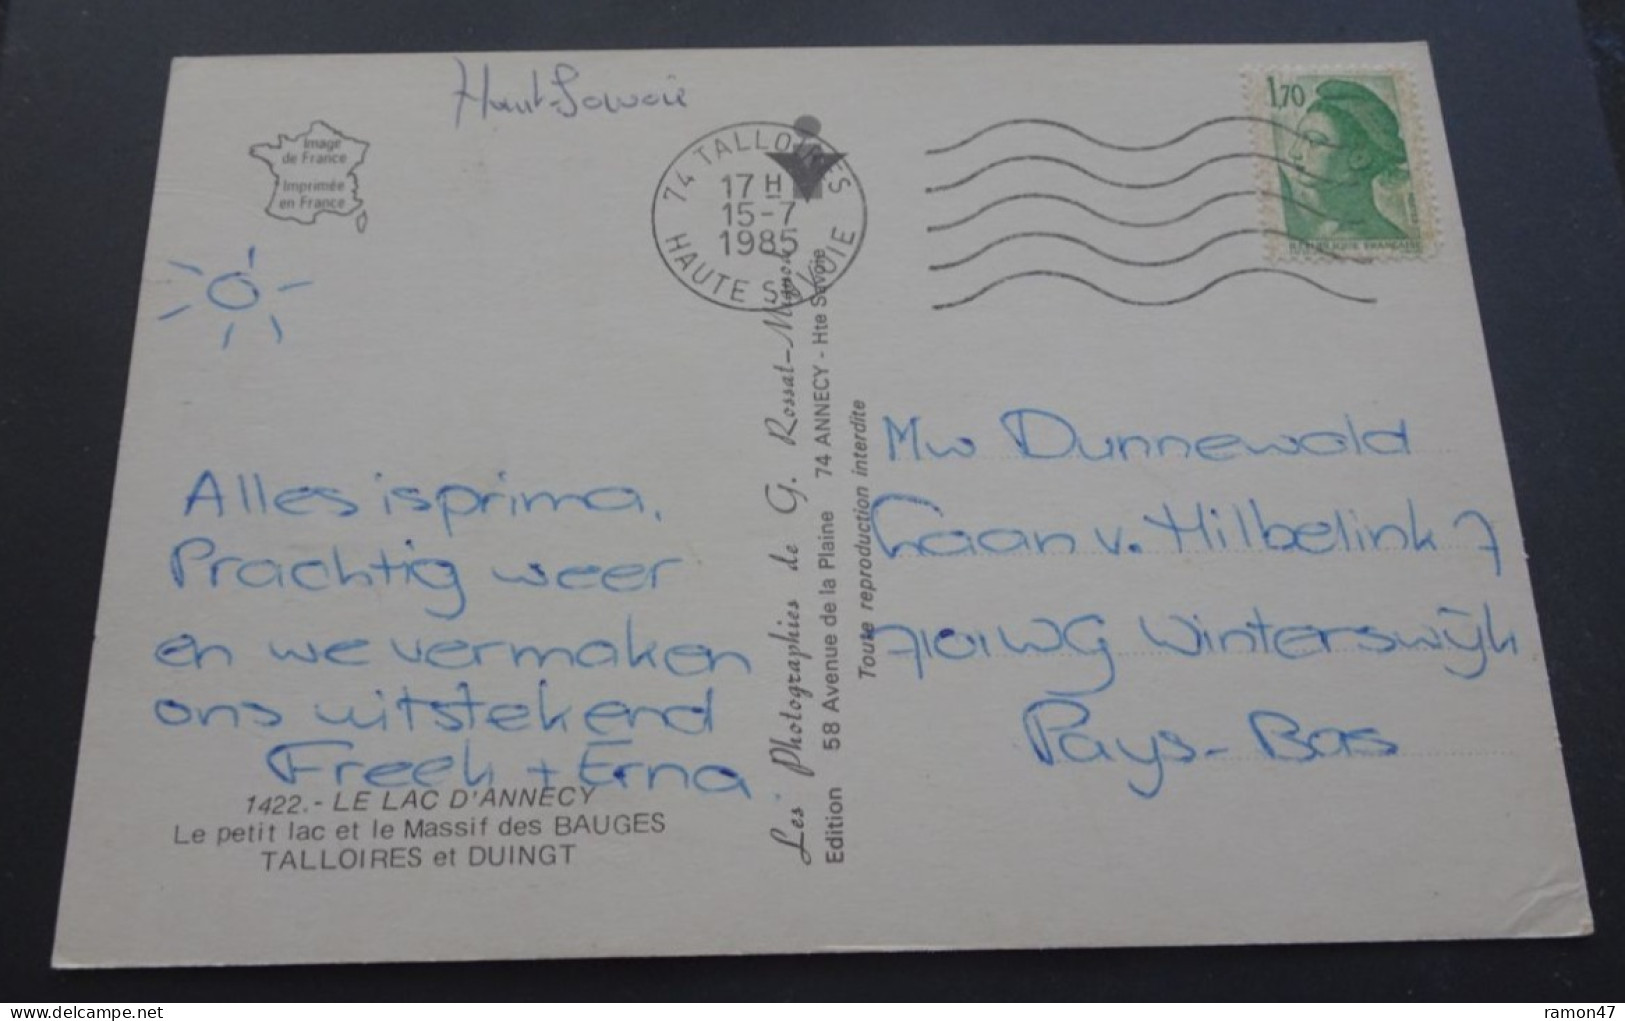 Haut-Savoie
Image
de France
Imprimée
en France
74 TALLOIRES
17 H
15-7
1985
HAUTE SAVOIE
1,70
REPUBLIQUE FRANÇAISE
Alles is prima.
Prachtig weer
en we vermaken
ons uitstekend
Freek + Erna.
1422.- LE LAC D'ANNECY
Le petit lac et le Massif des BAUGES
TALLOIRES et DUINGT
Les Photographies de G. Rossat-Mignod
Edition 58 Avenue de la Plaine 74 ANNECY - Hte Savoie
Toute reproduction interdite
Mw Dunnewold
Laan v. Hilbelink 7
7101WG Winterswijk
Pays-Bas
ramon47
delcampe.net